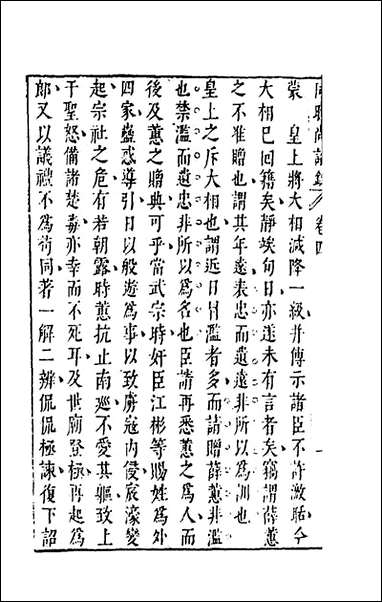 蒙　皇上將大相減降一級并傳示諸臣不許激聒今
大相已回籍矣靜埃旬日亦遂未有言者矣竊謂薛蕙
之不准贈也謂其年遠表忠而遺遠非所以為訓也
皇上之斥大相也謂近日日濫者多而請贈薛蕙非濫
也禁濫而遺忠非所以為名也臣請再悉蕙之為人而
後及蕙之贈典可乎當武宗時奸臣江彬等賜姓為外
四家蠱惑導引日以般遊為事以致虜寇内侵宸濠變
起宗社之危有若朝露時蕙抗止南巡不愛其軀致上
干聖怒備諸楚毒亦幸而不死耳及世廟登極再起為
郎又以議禮不為苟同著一解二辨侃侃極諫復下詔